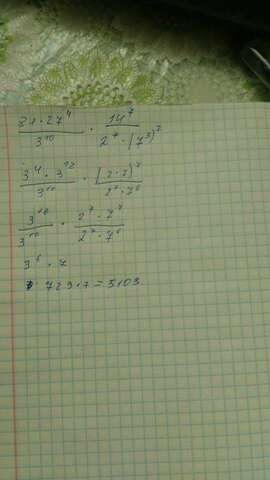 81·27⁴/3¹⁰ · 14⁷/2⁷·(7³)²
3⁴·3¹²/3¹⁰ · (2·7)⁷/2⁷·7⁶
3¹⁶/3¹⁰ · 2⁷·7⁷/2⁷·7⁶
3⁶·7
729·7=5103